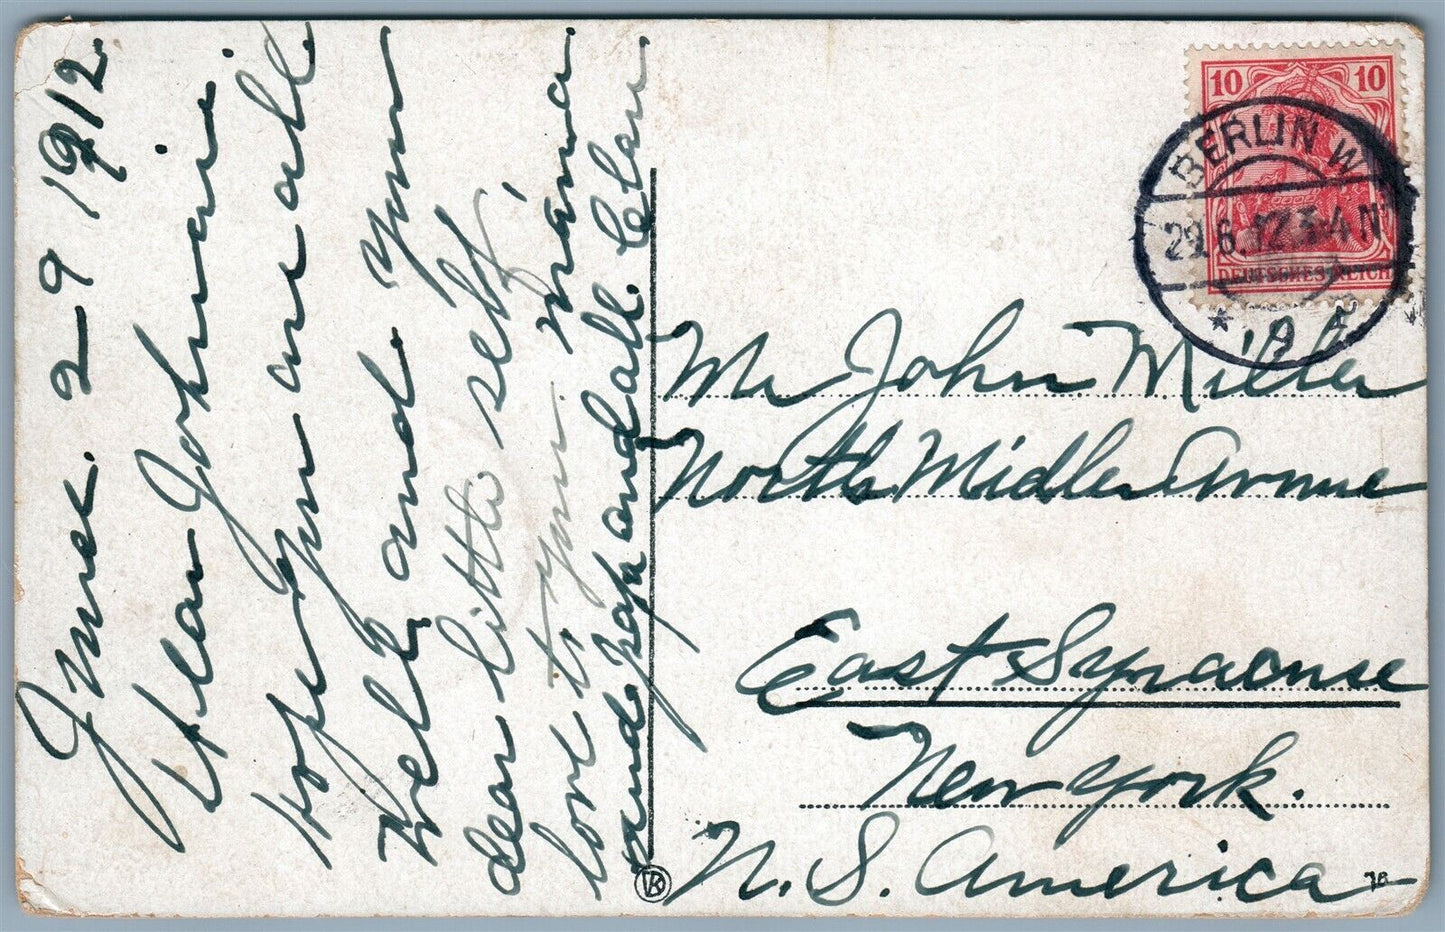 June. 2-9 1912.
Dear Johnnie.
hope you are all
Well, and your
dear little self
love to your máma
and papa and all. Clara
10 10
BERLIN W
29.6.12.3-4N
* 9 *
DEUTSCHES REICH
Mr John Miller
North Midler Avenue
East Syracuse
New York.
N. S. America